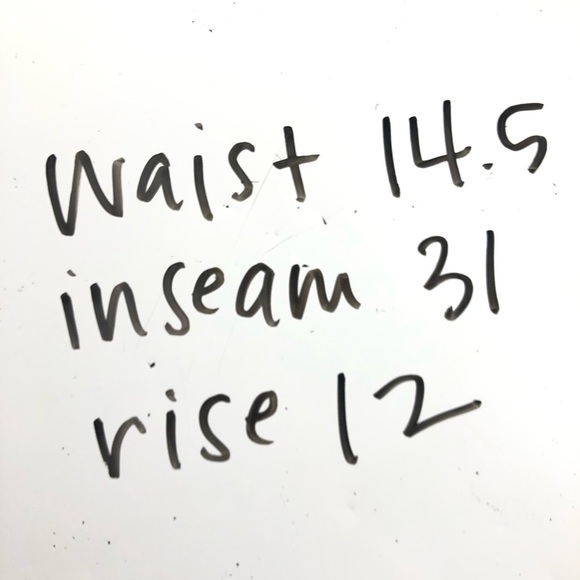 Waist 14.5
inseam 31
rise 12